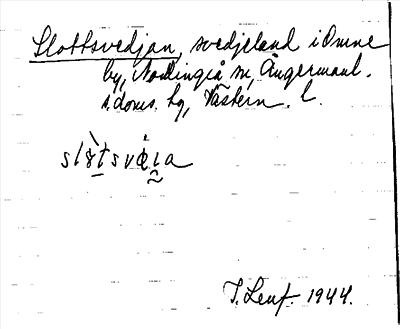 Slottsvedjan, svedjeland i Omne
by, Nordingrå sn, Ångermanl.
s. doms. hg, Västern. l.
slòtsvæ̀ɩa
T. Lenf. 1944.